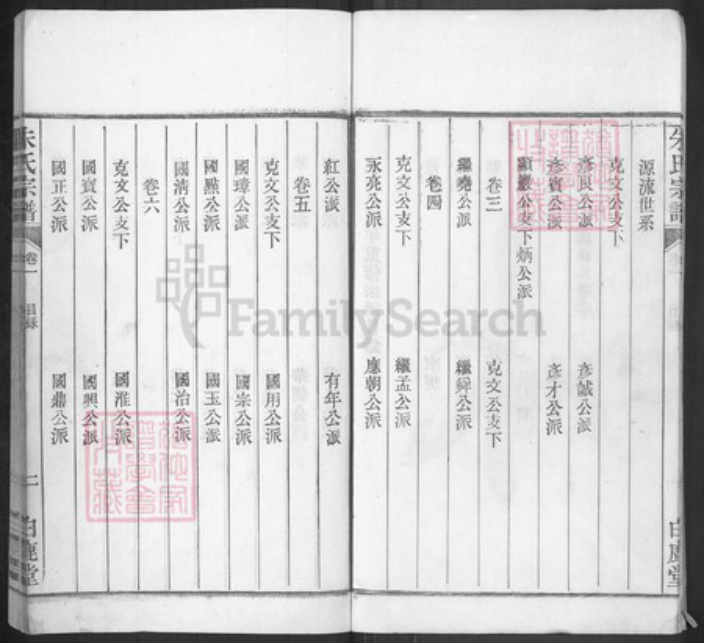 朱氏宗譜
白鹿堂
源流世系
克文公支下
彥良公派 彥誠公派
彥賓公派 彥才公派
顯嚴公支下炳公派
卷三 克文公支下
繼堯公派 繼舜公派
卷四
克文公支下 繼孟公派
永亮公派 應朝公派
紅公派 有年公派
卷五
克文公支下 國用公派
國璋公派 國宗公派
國點公派 國玉公派
國清公派 國治公派
卷六
克文公支下 國淮公派
國寶公派 國興公派
國正公派 國鼎公派
朱氏宗譜 卷一 目錄 二 白鹿堂
FamilySearch